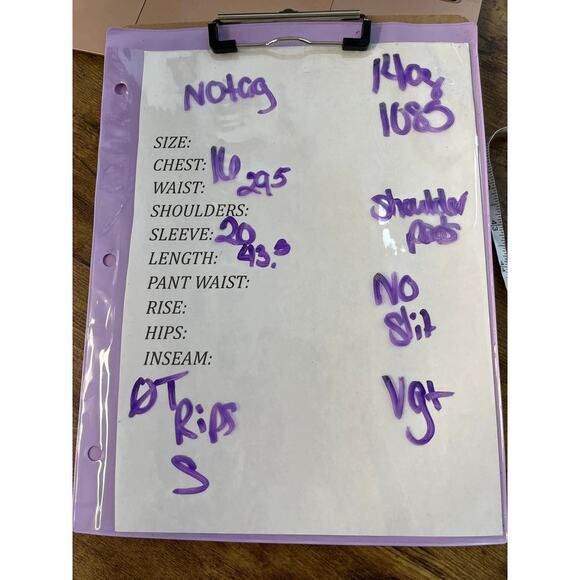 No tag
14oz
1085
SIZE:
CHEST: 16
WAIST: 29.5
SHOULDERS:
SLEEVE: 20
LENGTH: 43.5
PANT WAIST:
RISE:
HIPS:
INSEAM:
Shoulder
pads
No
Slit
ØT
Rips
S
Vg+